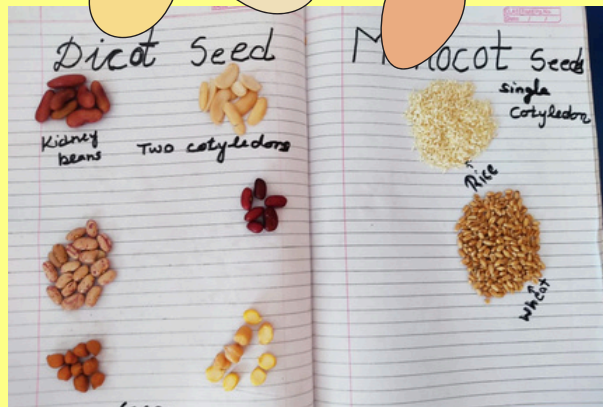 Dicot Seed
Kidney
beans
Two cotyledons
Seeds
single
Cotyledon
Rice
wheat